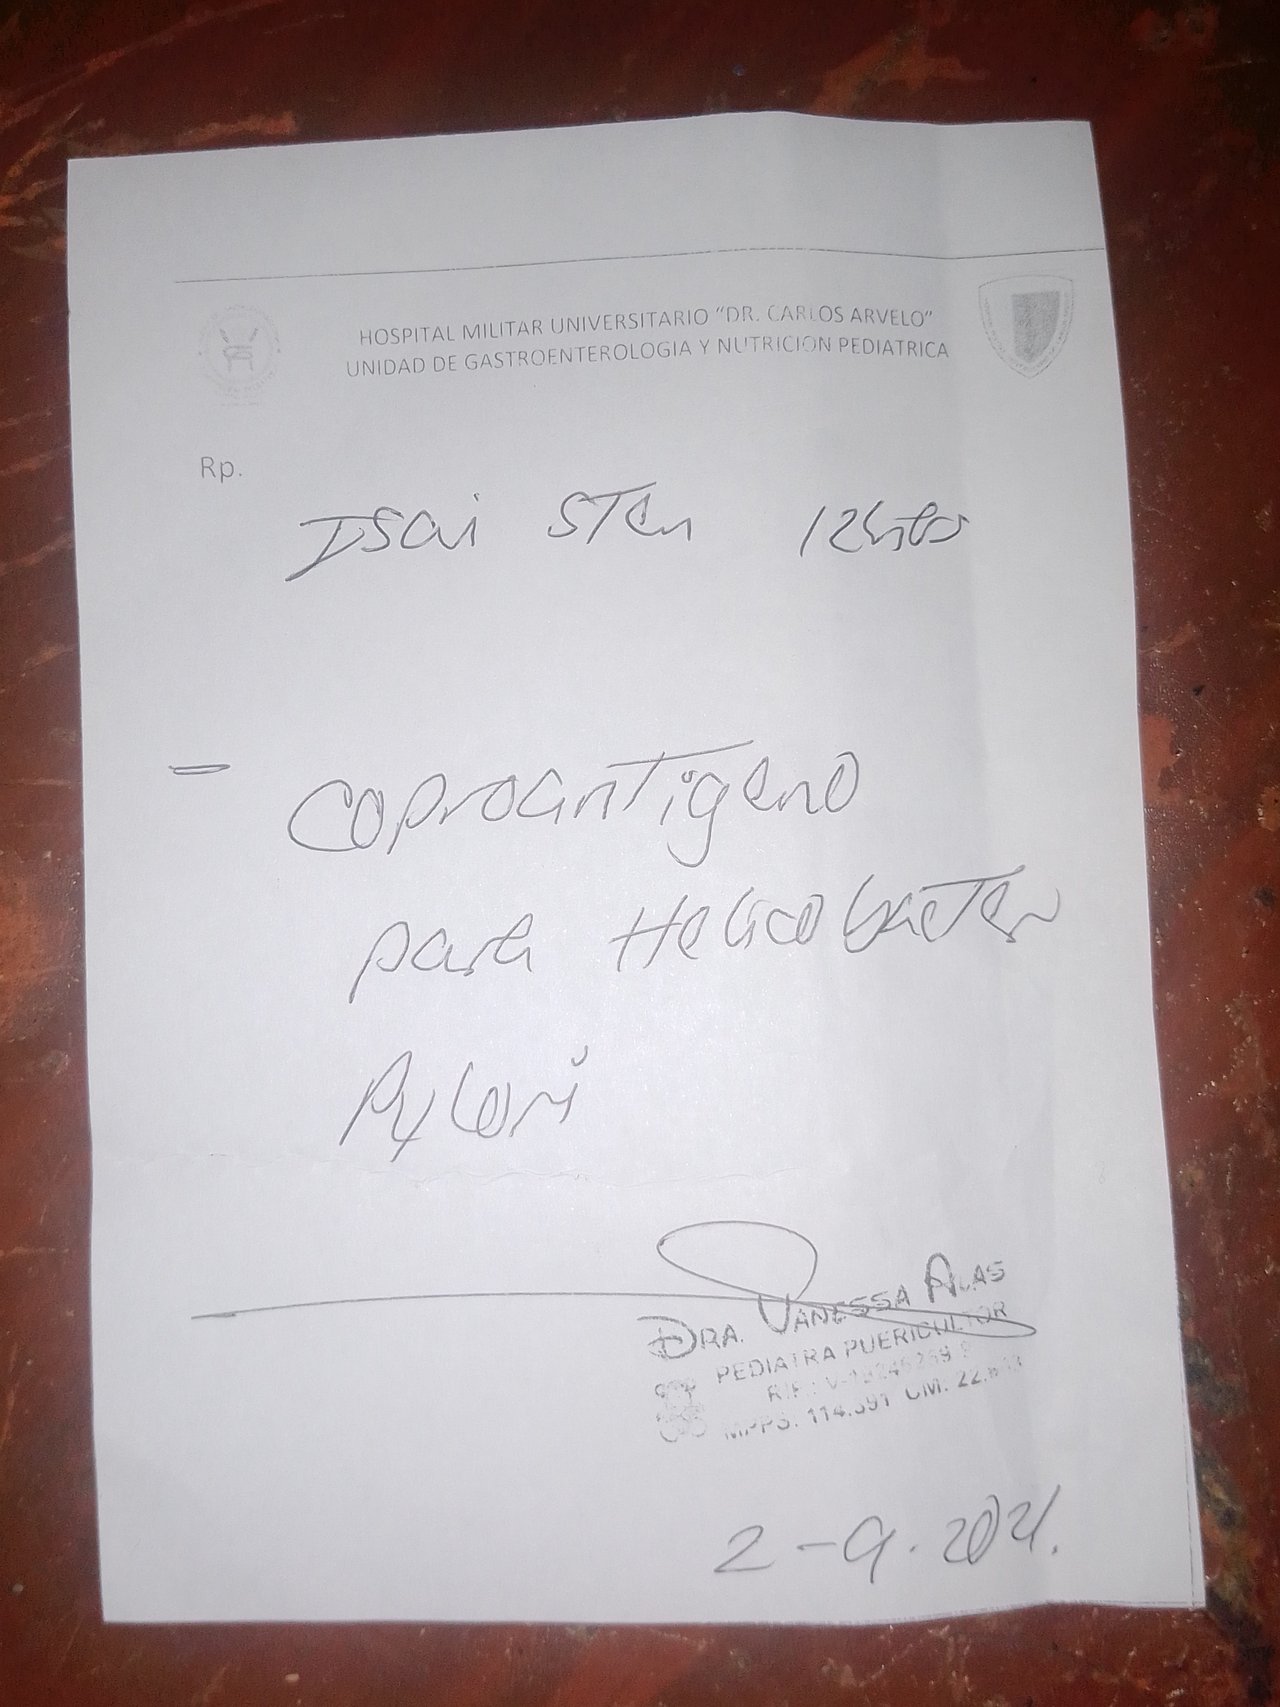 HOSPITAL MILITAR UNIVERSITARIO "DR. CARLOS ARVELO"
UNIDAD DE GASTROENTEROLOGIA Y NUTRICION PEDIATRICA
Rp.
Isai
- Coproantigeno
para Helicobacter
Pylori
DRA. VANESSA
PEDIATRA PUERICULTOR
MPPS: 114.391 CM:
2-9.2021.